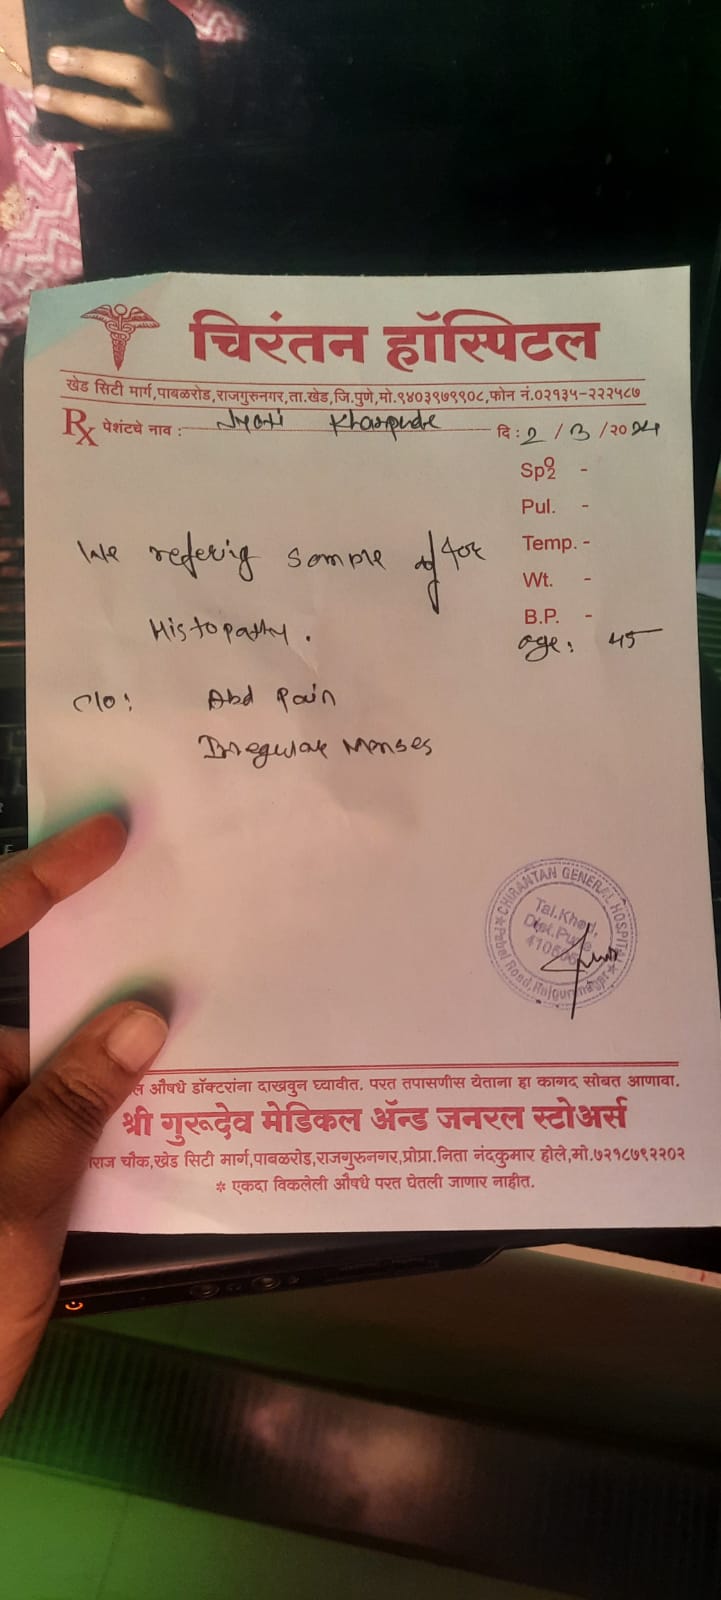 चिरंतन हॉस्पिटल
खेड सिटी मार्ग,पाबळरोड,राजगुरुनगर,ता.खेड,जि.पुणे,मो.९४०३९७९९०८,फोन नं.०२१३५-२२२५८७
Rx पेशंटचे नाव : Jyoti Kharpude दि : 2 / 3 /२० 24
Spo2 -
Pul. -
We refering sample of for
Temp. -
Wt. -
Histopathy.
B.P. -
age : 45
c/o : Abd pain
Irregular menses
CHIRANTAN GENERAL HOSPITAL
Tal.Khed,
Dist.Pune
Pabal Road, Rajgurunagar
औषधे डॉक्टरांना दाखवुन घ्यावीत. परत तपासणीस येताना हा कागद सोबत आणावा.
श्री गुरूदेव मेडिकल ॲन्ड जनरल स्टोअर्स
चौक,खेड सिटी मार्ग,पाबळरोड,राजगुरुनगर,प्रोप्रा.निता नंदकुमार होले,मो.७२१८७९२२०२
* एकदा विकलेली औषधे परत घेतली जाणार नाहीत.